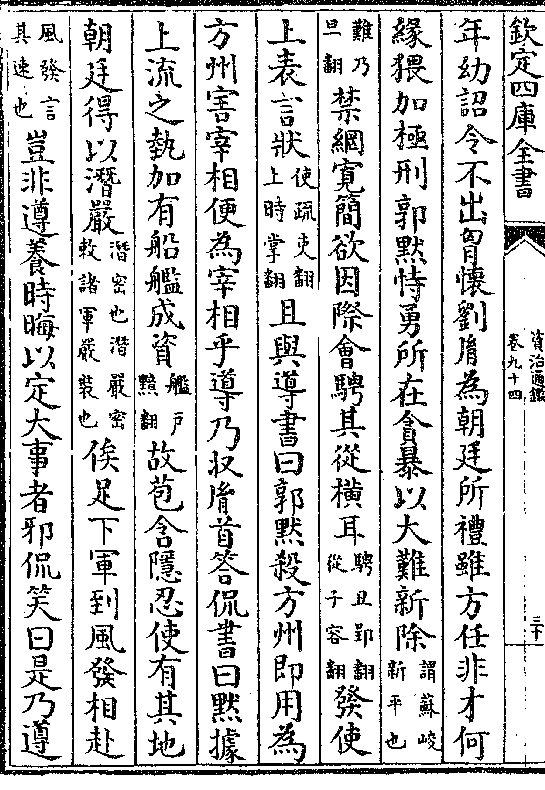 欽定四庫全書
資治通鑑
卷九十四
三十
年幼詔令不出胷懷劉𦙍為朝廷所禮雖方任非才何
緣猥加極刑郭黙恃勇所在貪暴以大難新除謂蘇峻新平也
難乃旦翻禁網寛簡欲因際會騁其從橫耳騁丑郢翻從子容翻發使
上表言狀使疏吏翻上時掌翻且與導書曰郭黙殺方州即用為
方州害宰相便為宰相乎導乃收𦙍首答侃書曰黙據
上流之埶加有船艦成資艦戶黯翻故苞含隱忍使有其地
朝廷得以潛嚴潛密也潛嚴密敕諸軍嚴裝也俟足下軍到風發相赴
風發言其速也豈非遵養時晦以定大事者邪侃笑曰是乃遵